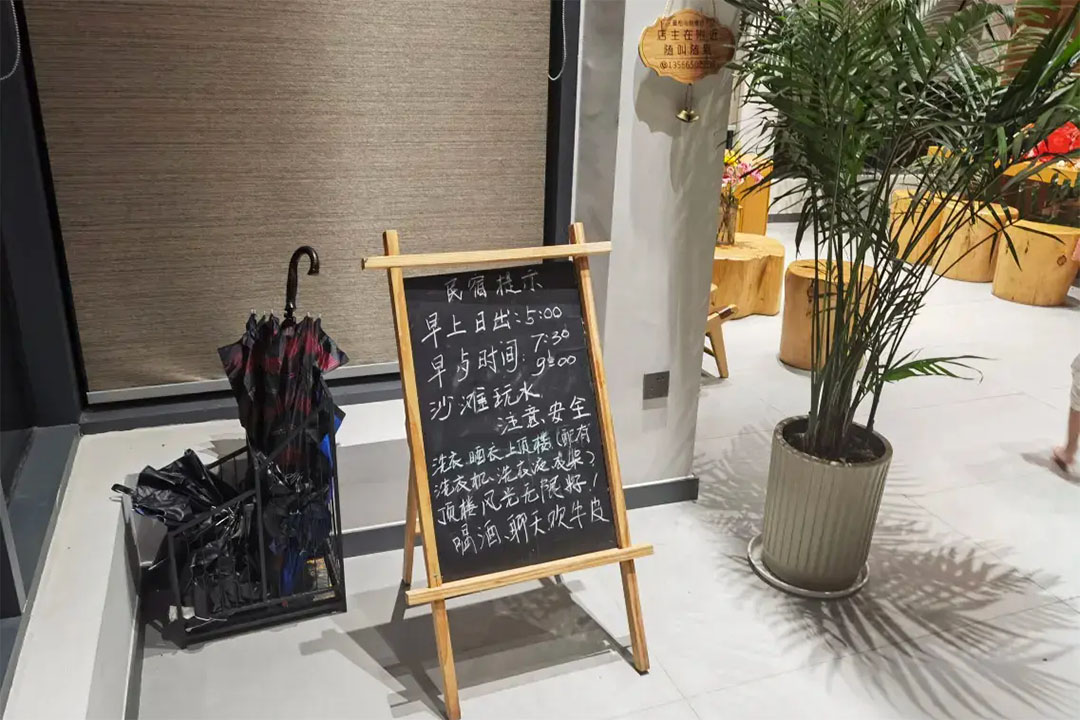 店主在附近
随叫随到
民宿提示
早上日出:5:00
早点时间:7:30
9:00
沙滩玩水
注意安全
洗衣、晒衣上顶楼(配有
洗衣机、洗衣液衣架?
顶楼风光无限好!
喝酒、聊天吹牛皮